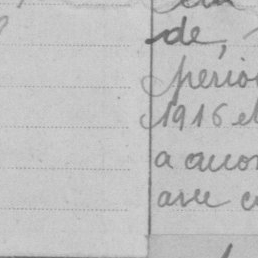 de,
périod
1916 et
a accor
avec c